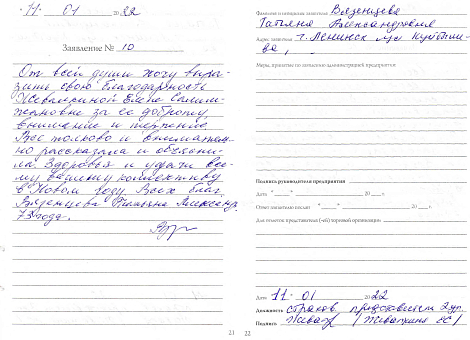 "11" 01 2022
Заявление № 10
От всей души хочу выра-
зить свою благодарность
Жеваткиной Елене
за её доброту
внимание и терпение.
Все толково и вниматель-
но рассказала и объясни-
ла. Здоровья и удачи все-
му вашему коллективу
в Новом году. Всех благ.
Вязенцева Татьяна Александр.
73 года.
21
Фамилия и инициалы заявителя Вязенцева
Татьяна Александровна
Адрес заявителя г. Ленинск ул Куйбыше-
ва,
Меры, принятые по заявлению администрацией предприятия
Подпись руководителя предприятия
Дата " " 20 г.
Ответ заявителю послан " " 20 г.
Для отметок представителя (-ей) торговой организации
Дата 11 01 2022
Должность страхов представитель 2 ур.
Подпись Жеват / Жеваткина ЕС /
22